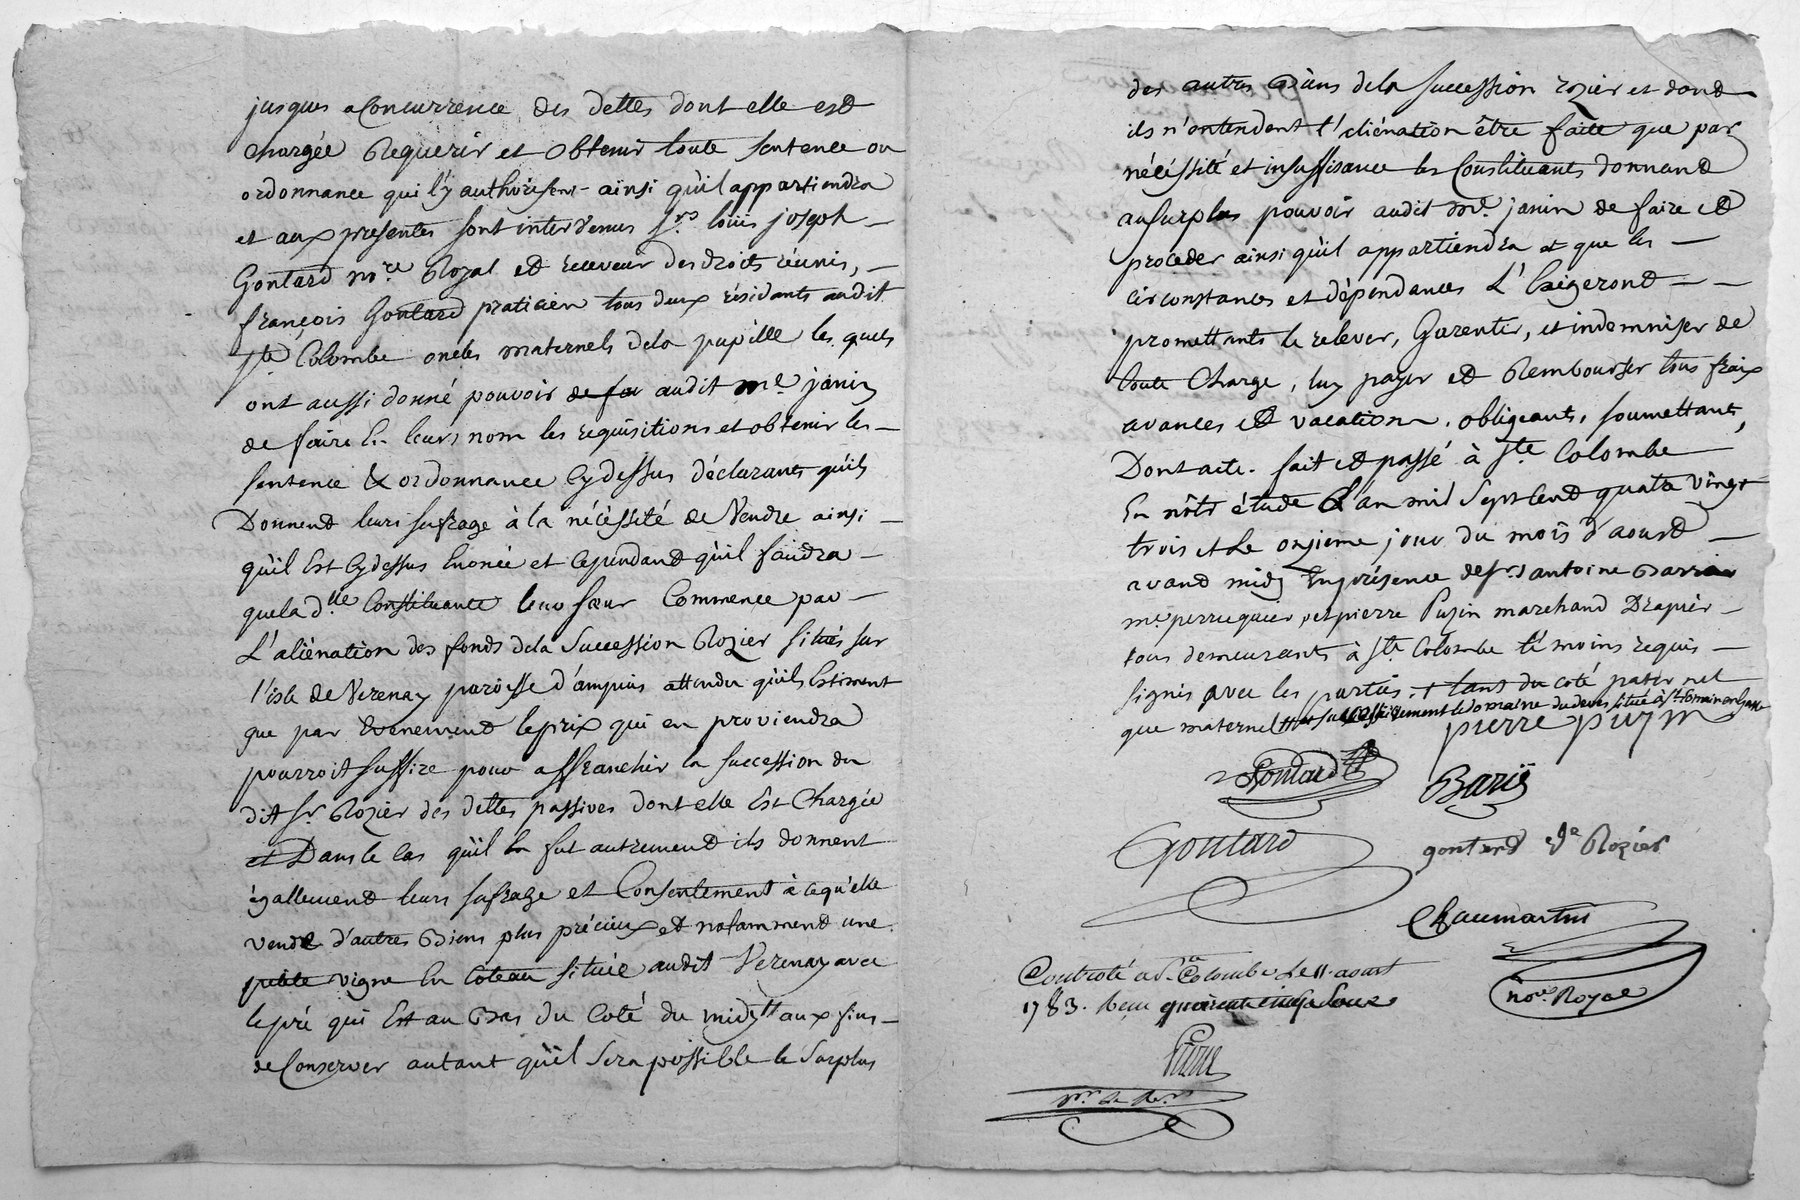 jusques a Concurrence des dettes dont elle est
chargée Requerir et obtenir toute sentence ou
ordonnance qui l'y authorisent ainsi qu'il appartiendra
et aux presentes sont intervenus Srs loüis joseph
Gontard nore Royal et receveur des droits réunis,
françois Gontard praticien tous deux résidants audit
Ste Colombe oncles maternels dela pupille les quels
ont aussi donné pouvoir audit me janin
de faire En leurs nom les requisitions et obtenir les
sentence & ordonnance Cy dessus déclarants qu'ils
Donnent leurs sufrage à la nécéssité de Vendre ainsi
qu'il Est Cy dessus Enoncé et Cependant qu'il faudra
que la dlle Constituante leur sœur Commence par
L'aliénation des fonds dela Succession Rozier situés sur
l'isle de Verenay paroisse d'ampuis attendu qu'ils Estiment
que par Evenement le prix qui en proviendra
pourroit suffire pour affranchir la succession du
dit Sr Rozier des dettes passives dont elle Est Chargée
et Dans le Cas qu'il en fut autrement ils donnent
égallement leurs sufrage et Consentement à ce qu'elle
vende d'autres Biens plus précieux et notamment une
petite vigne En Coteau située audit Verenay avec
le pré qui Est au Bas du Coté du midy aux fins
de Conserver autant qu'il Sera possible le Surplus
des autres Biens dela succession rozier et dont
ils n'entendent l'aliénation être faite que par
nécéssité et insuffisance les Constituants donnant
au surplus pouvoir audit me janin de faire et
proceder ainsi qu'il appartiendra et que les
circonstances et dépendances L'Exigeront
promettants le relever, Garentir, et indemniser de
toute Charge, luy payer et Rembourser tous fraix
avances et vacation, obligeants, soumettants,
Dont acte. fait et passé à Ste Colombe
En nôtre étude L'an mil Sept Cent quatre vingt
trois et Le onzieme jour du mois d'aoust
avant midy En présence de srs antoine Barri
me perruquier, et pierre Puzin marchand Drapier
tous demeurants à Ste Colombe témoins requis
signés avec les parties. + tant du coté paternel
que maternel successivement le domaine du devens situé à St Romain en
pierre puzin
Gontard
Barij
Gontard
gontard Ve Rozier
Chaumartin
nore Royal
Controlé a Ste Colombe Le 11. aoust
1783. Reçu quarante cinq Sous